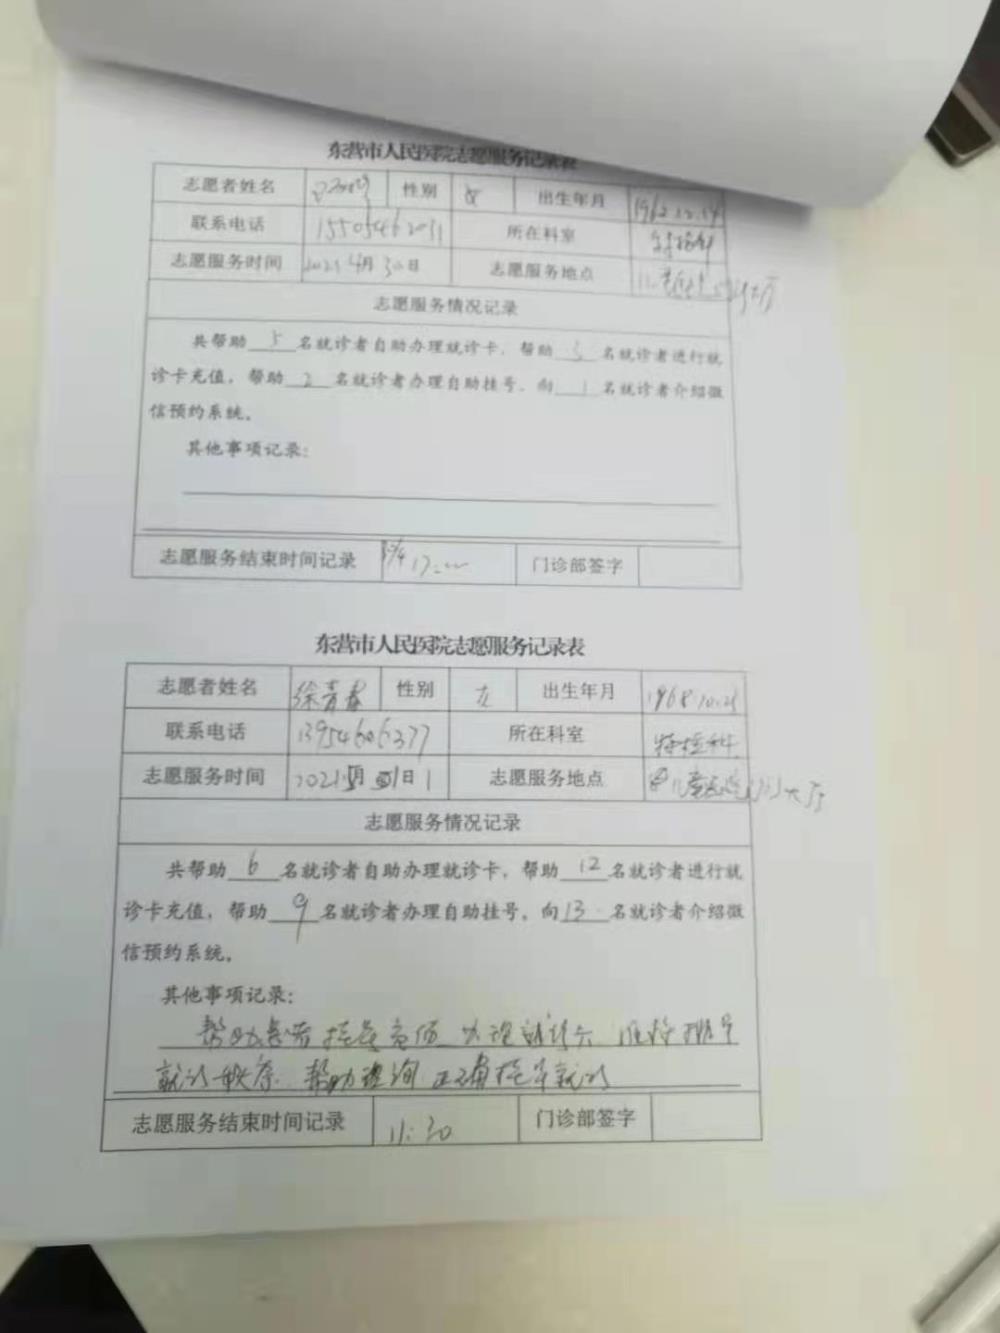 东营市人民医院志愿服务记录表
志愿者姓名 性别 女 出生年月 1962.12.14
联系电话 15505462011 所在科室 特检科
志愿服务时间 2021年4月30日 志愿服务地点 大厅
志愿服务情况记录
共帮助 5 名就诊者自助办理就诊卡，帮助 3 名就诊者进行就
诊卡充值，帮助 2 名就诊者办理自助挂号，向 1 名就诊者介绍微
信预约系统。
其他事项记录：
志愿服务结束时间记录 30/4 17:00 门诊部签字
东营市人民医院志愿服务记录表
志愿者姓名 徐青春 性别 女 出生年月 1968.10.25
联系电话 13954606377 所在科室 特检科
志愿服务时间 2021.5月1日 志愿服务地点 儿童门诊大厅
志愿服务情况记录
共帮助 6 名就诊者自助办理就诊卡，帮助 12 名就诊者进行就
诊卡充值，帮助 9 名就诊者办理自助挂号，向 13 名就诊者介绍微
信预约系统。
其他事项记录：
帮助患者挂号充值 办理就诊卡 维持排号
就诊秩序 帮助查询 正确挂号就诊
志愿服务结束时间记录 11:30 门诊部签字